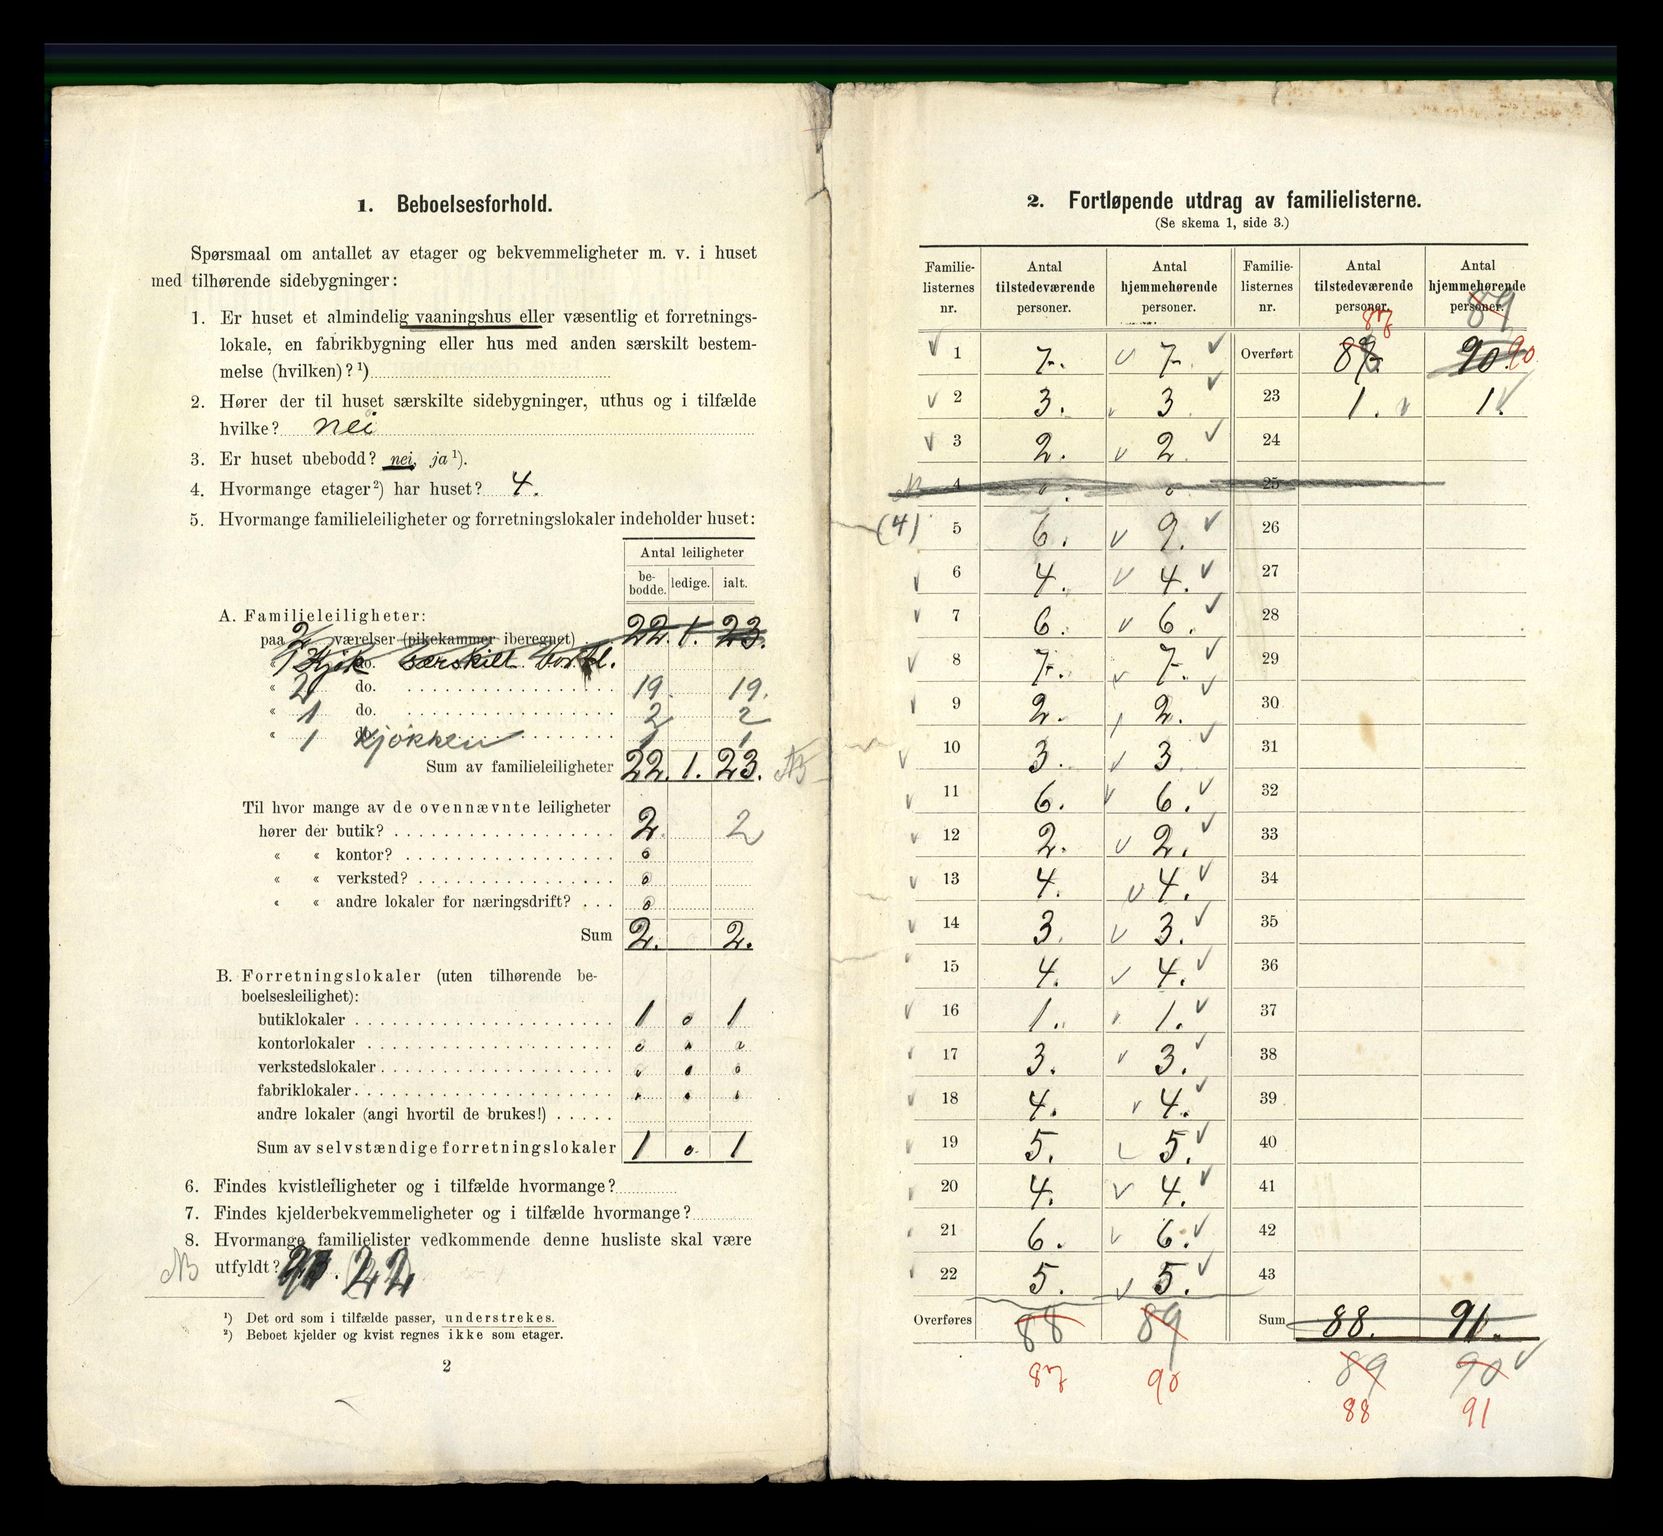 1. Beboelsesforhold.
Spørsmaal om antallet av etager og bekvemmeligheter m. v. i huset
med tilhørende sidebygninger:
1. Er huset et almindelig vaaningshus eller væsentlig et forretnings-
lokale, en fabrikbygning eller hus med anden særskilt bestem-
melse (hvilken)? ¹)
2. Hører der til huset særskilte sidebygninger, uthus og i tilfælde
hvilke? nei
3. Er huset ubebodd? nei, ja ¹).
4. Hvormange etager ²) har huset? 4.
5. Hvormange familieleiligheter og forretningslokaler indeholder huset:
Antal leiligheter
be-
bodde. ledige. ialt.
A. Familieleiligheter:
paa 2 værelser (pikekammer iberegnet) 22. 1. 23.
" 1 Kjøk do. særskilt bortl.
« 2 do. 19. 19.
« 1 do. 2 2
« 1 Kjøkken 1 1
Sum av familieleiligheter 22. 1. 23. NB
Til hvor mange av de ovennævnte leiligheter
hører der butik? 2. 2
« « kontor? 0
« « verksted? 0
« « andre lokaler for næringsdrift? 0
Sum 2. 2.
B. Forretningslokaler (uten tilhørende be-
boelsesleilighet):
butiklokaler 1 0 1
kontorlokaler 0 0 0
verkstedslokaler 0 0 0
fabriklokaler
andre lokaler (angi hvortil de brukes!)
Sum av selvstændige forretningslokaler 1 0 1
6. Findes kvistleiligheter og i tilfælde hvormange?
7. Findes kjelderbekvemmeligheter og i tilfælde hvormange?
8. Hvormange familielister vedkommende denne husliste skal være
NB utfyldt? 23. 22
¹) Det ord som i tilfælde passer, understrekes.
²) Beboet kjelder og kvist regnes ikke som etager.
2
2. Fortløpende utdrag av familielisterne.
(Se skema 1, side 3.)
Familie- Antal Antal Familie- Antal Antal
listernes tilstedeværende hjemmehørende listernes tilstedeværende hjemmehørende
nr. personer. personer. nr. personer. personer.
87 89
1 7. 7. Overført 87. 90. 90
2 3. 3 23 1. 1.
3 2. 2 24
NB 4 0. 0 25
(4) 5 6. 9. 26
6 4. 4. 27
7 6. 6. 28
8 7. 7. 29
9 2. 2. 30
10 3. 3 31
11 6. 6. 32
12 2. 2. 33
13 4. 4. 34
14 3. 3. 35
15 4. 4. 36
16 1. 1. 37
17 3. 3. 38
18 4. 4. 39
19 5. 5. 40
20 4. 4. 41
21 6. 6. 42
22 5. 5. 43
Overføres 88 89 Sum 88. 91.
87 90 89 90
88 91